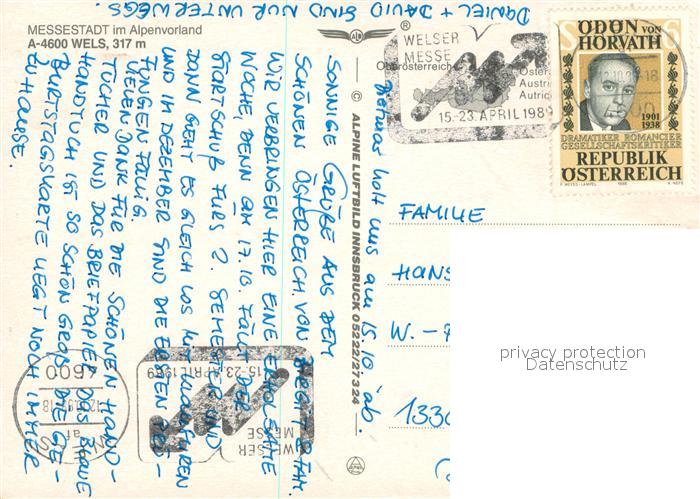 MESSESTADT im Alpenvorland
A-4600 WELS, 317 m
Oberösterreich
DANIEL + DAVID SIND NUR UNTERWEGS.
SONNIGE GRÜßE AUS DEM
SCHÖNEN ÖSTERREICH VON
WIR VERBRINGEN HIER EINE
WOCHE, DENN AM 17.10. FÄLLT DER
STARTSCHUß FÜRS 2. SEMESTER UND
DANN GEHT ES GLEICH LOS MIT
UND IM DEZEMBER SIND DIE ERSTEN PRÜ-
FUNGEN FÄLLIG.
VIELEN DANK FÜR DIE SCHÖNEN HAND-
TÜCHER UND DAS BRIEFPAPIER. DAS BLAUE
HANDTUCH IST SO SCHÖN GROß. DIE GE-
BURTSTAGSKARTE LIEGT NOCH IMMER
ZUHAUSE.
holt uns am 15.10. ab.
© ALPINE LUFTBILD INNSBRUCK 05222/27324
WELSER
MESSE
15.-23. APRIL 1989
ÖDÖN VON
HORVATH
1901
1938
DRAMATIKER ROMANCIER
GESELLSCHAFTSKRITIKER
REPUBLIK
ÖSTERREICH
FAMILIE
HANS
W. -
1330
privacy protection
Datenschutz
4600
WELSER
MESSE
15.-23. APRIL 1989